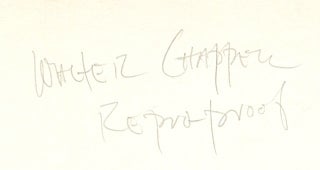 Walter Chappell
Repro proof